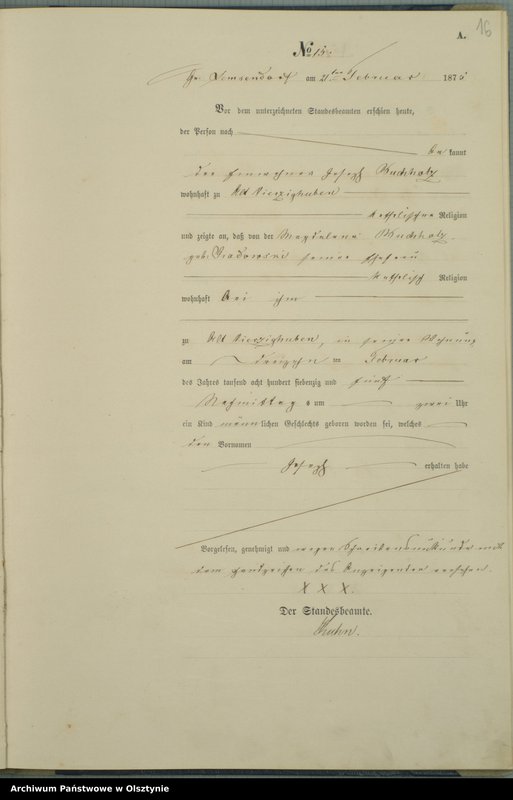 16
A.
No 15.
Gr. Lemkendorf am 21ten Februar 1875
Vor dem unterzeichneten Standesbeamten erschien heute,
der Person nach
bekannt
der Einwohner Joseph Buchholz
wohnhaft zu Alt Vierzighuben
katholischer Religion
und zeigte an, daß von der Magdalena Buchholz
geb. Gradowski seiner Ehefrau
katholisch Religion
wohnhaft bei ihm
zu Alt Vierzighuben, in seiner Wohnung
am dreizehn ten Februar
des Jahres tausend acht hundert siebenzig und fünf
Nachmittags um zwei Uhr
ein Kind männlichen Geschlechts geboren worden sei, welches
den Vornamen
Joseph erhalten habe
Vorgelesen, genehmigt und wegen Schreibensunkunde mit
dem Handzeichen des Anzeigenden versehen.
X X X.
Der Standesbeamte.
Kuhn.
Archiwum Państwowe w Olsztynie